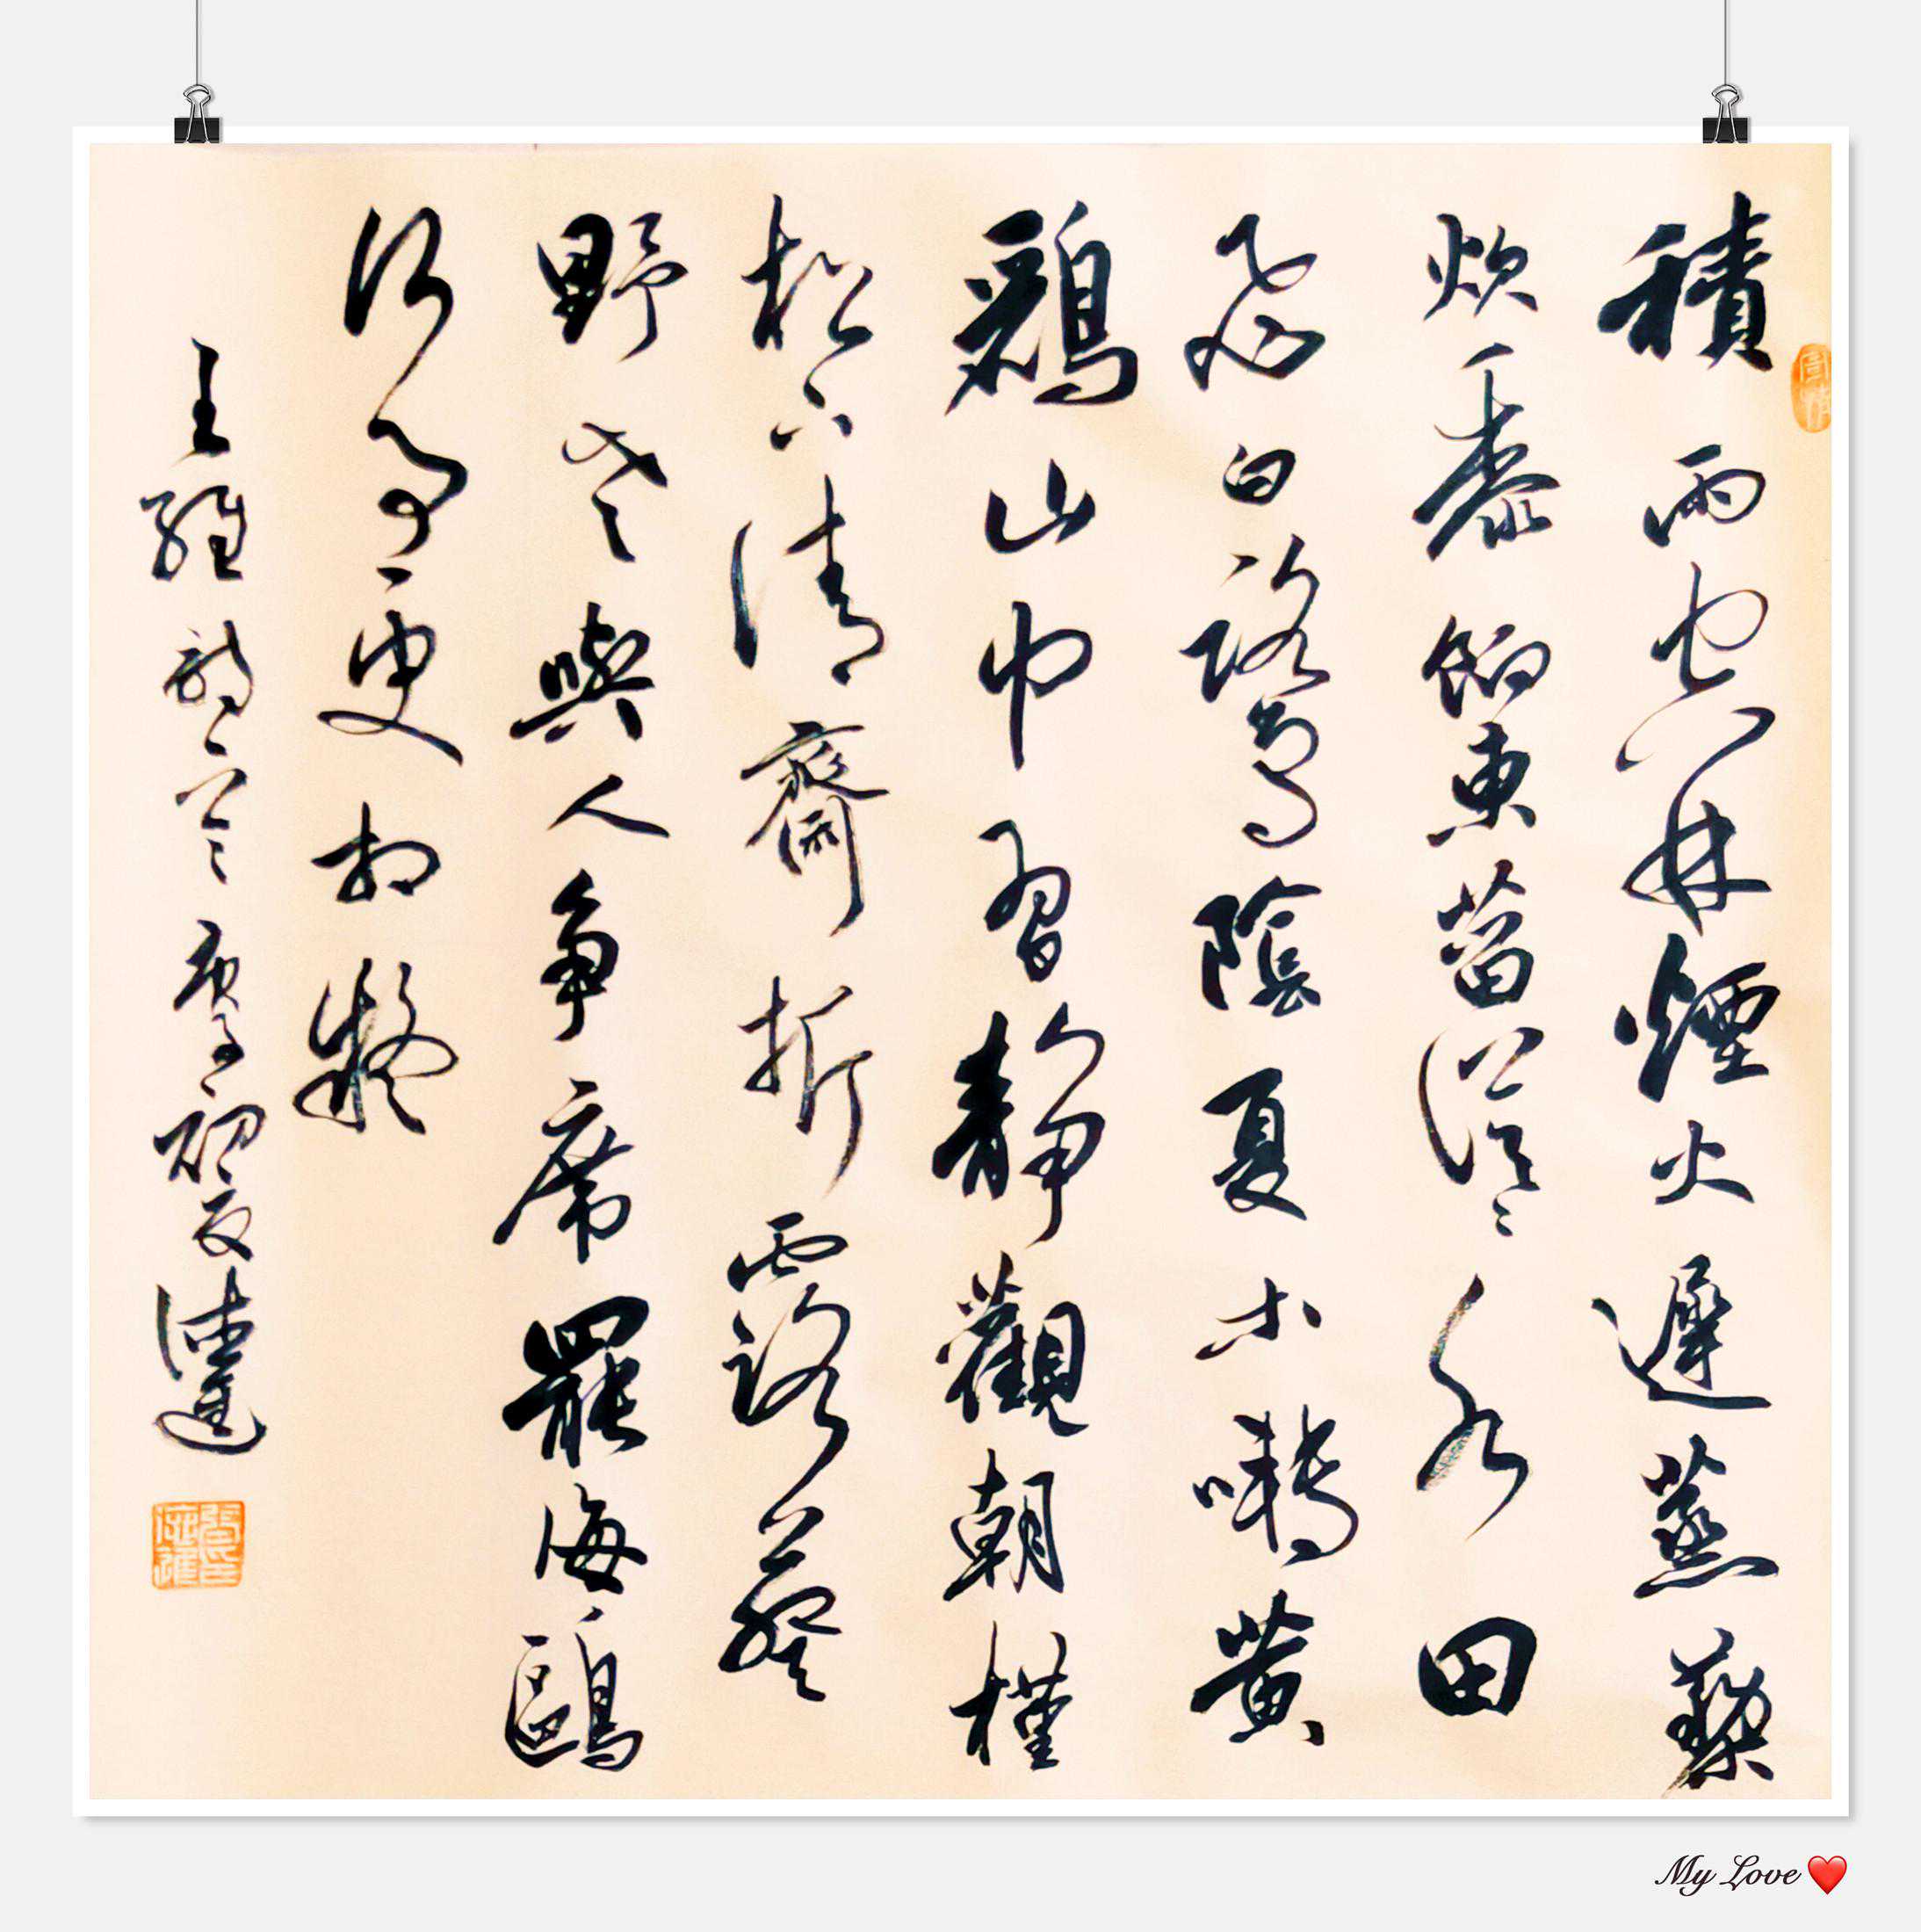 積雨空林煙火遲蒸藜
炊黍餉東菑漠〻水田
飛白鷺陰夏木囀黃
鸝山中習靜觀朝槿
松下清齋折露葵
野老與人爭席罷海鷗
何事更相疑
王維詩一首庚子初夏
My Love ❤️